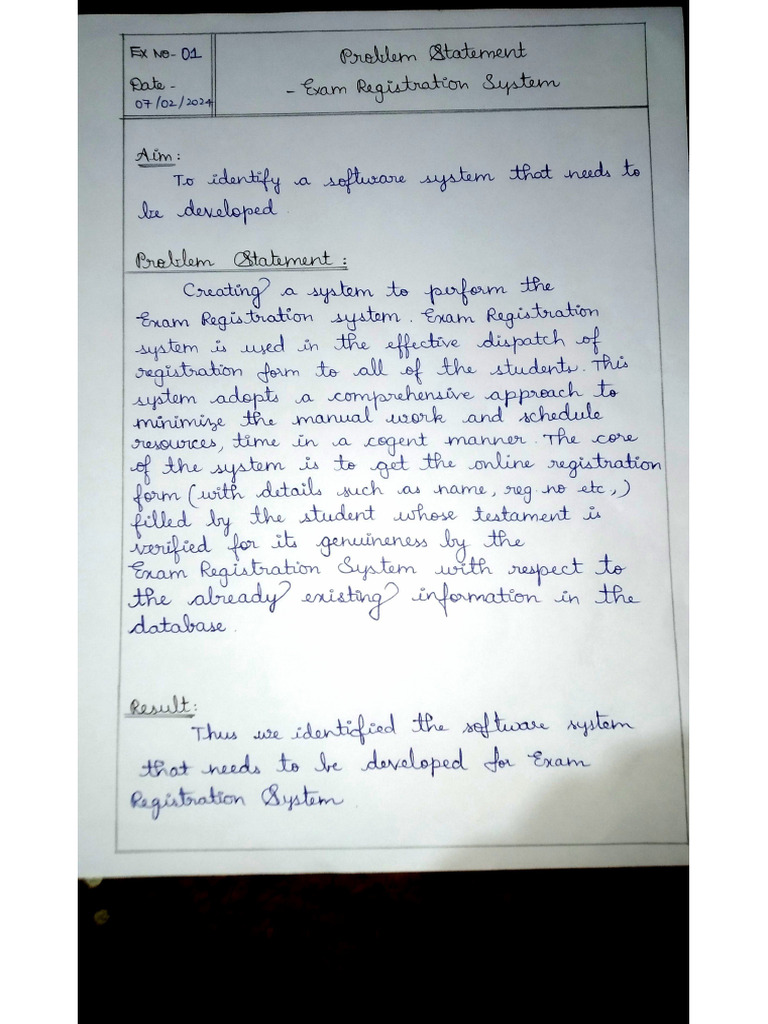 Ex No- 01
Date -
07/02/2024
Problem Statement
- Exam Registration System
Aim:
To identify a software system that needs to
be developed.
Problem Statement:
Creating a system to perform the
Exam Registration system. Exam Registration
system is used in the effective dispatch of
registration form to all of the students. This
system adopts a comprehensive approach to
minimize the manual work and schedule
resources, time in a cogent manner. The core
of the system is to get the online registration
form (with details such as name, reg. no etc.,)
filled by the student whose testament is
verified for its genuineness by the
Exam Registration System with respect to
the already existing information in the
database.
Result:
Thus we identified the software system
that needs to be developed for Exam
Registration System.